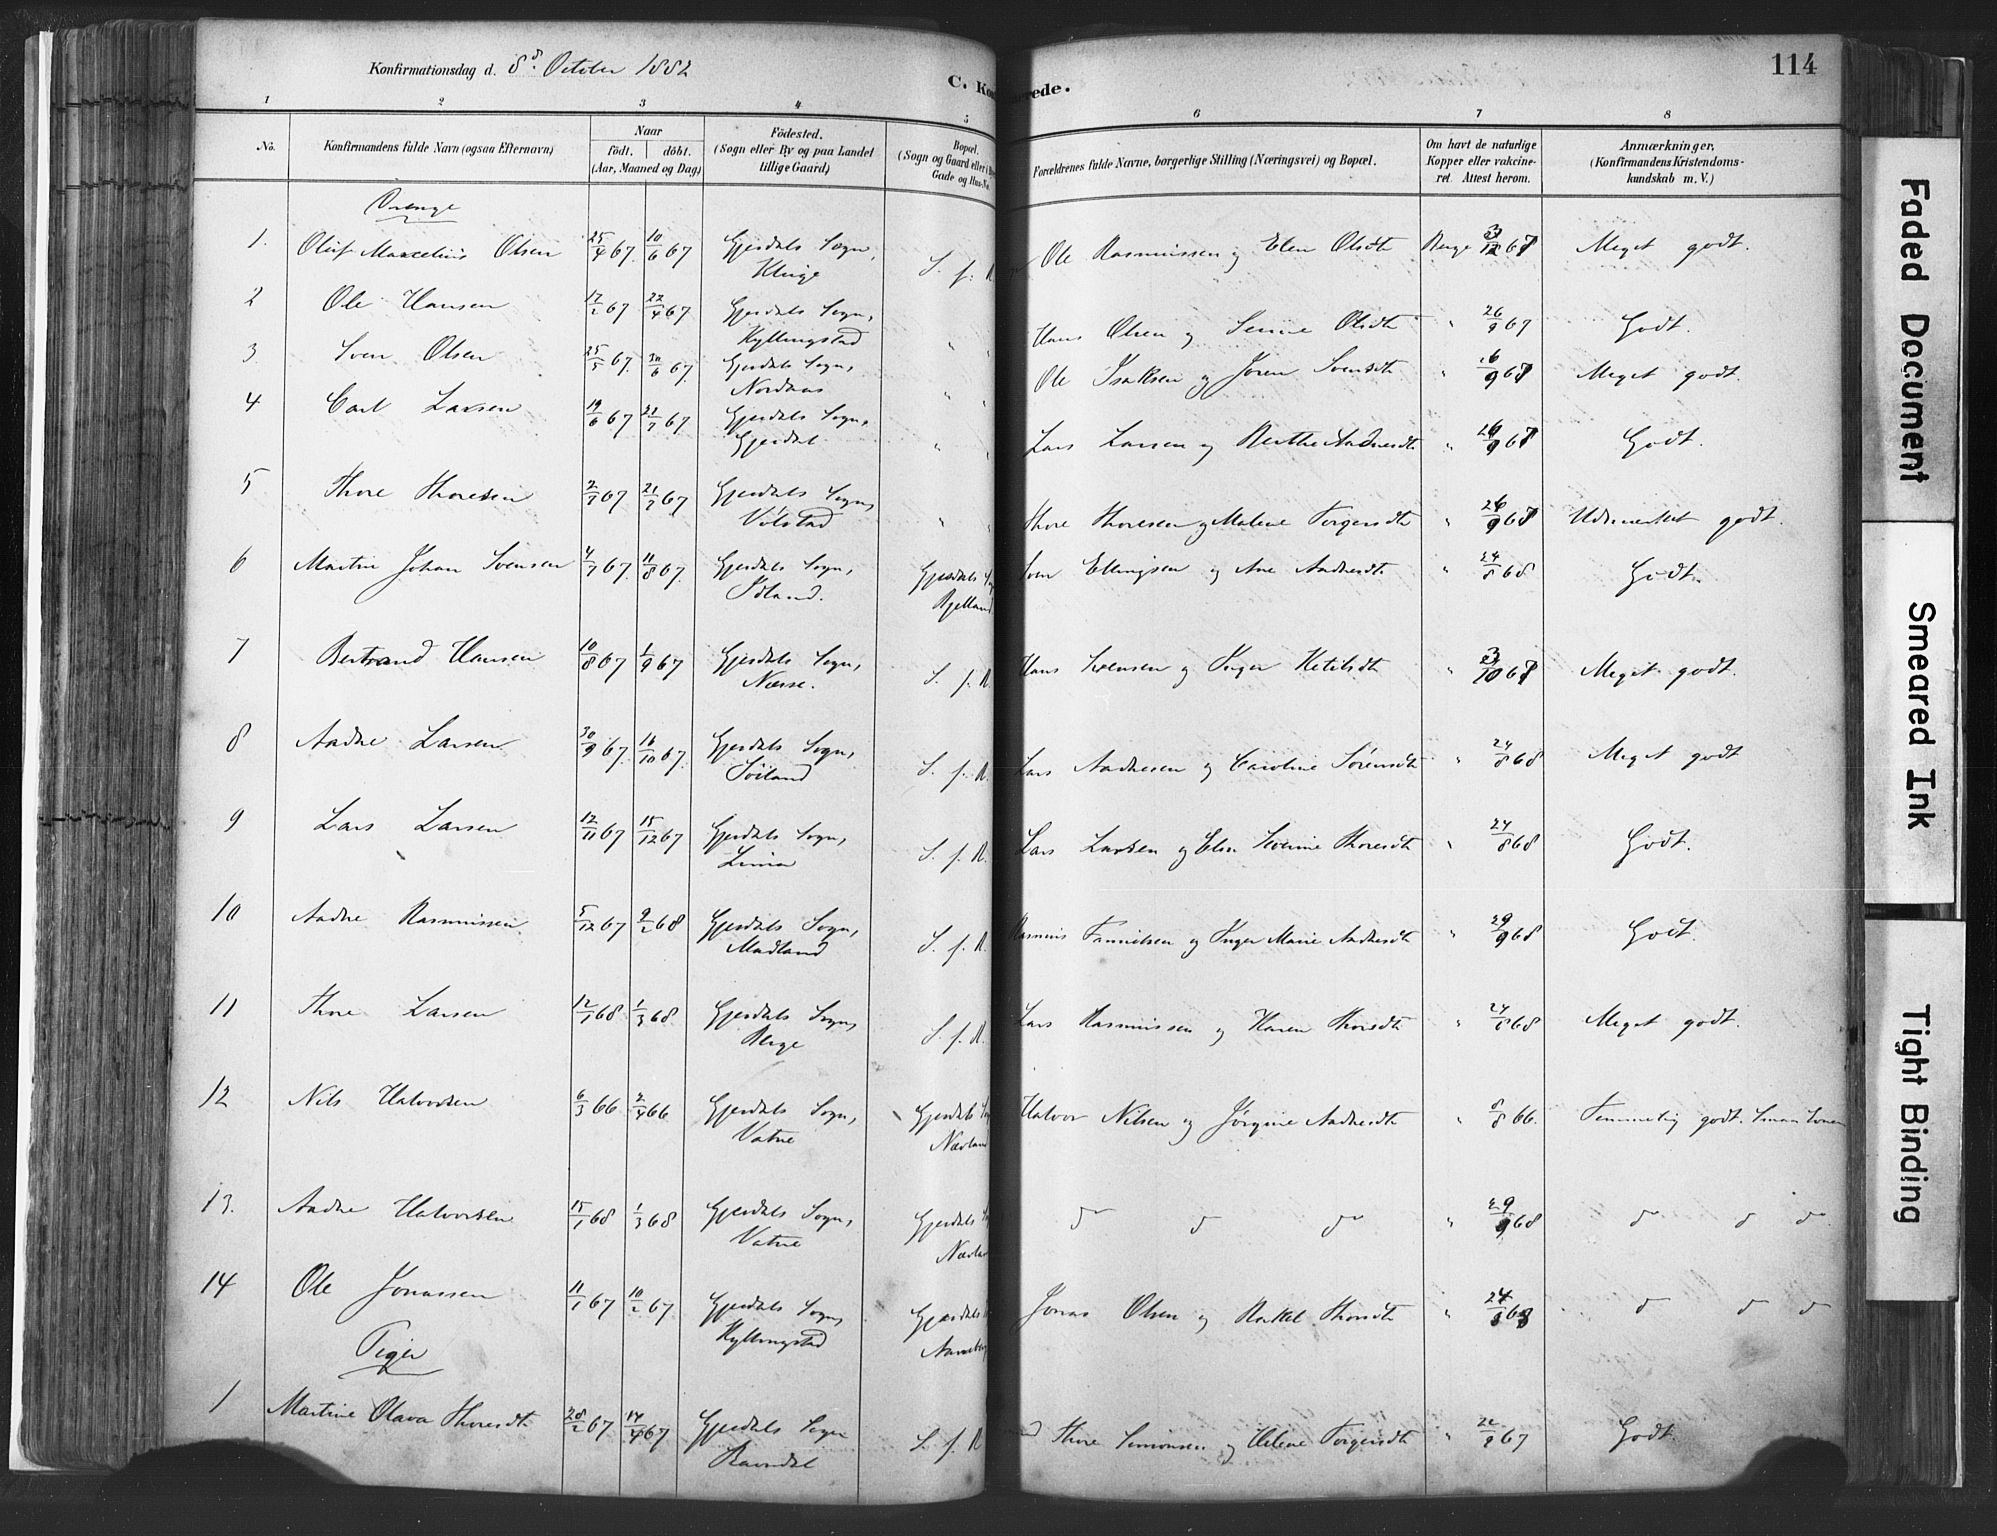 Konfirmationsdag d. 8de October 1882
C. Kon
merede.
114
1 2 3 4 5 6 7 8
No.
Konfirmandens fulde Navn (ogsaa Efternavn)
Naar
født. døbt.
(Aar, Maaned og Dag)
Födested.
(Sogn eller By og paa Landet
tillige Gaard)
Bopæl.
(Sogn og Gaard eller i
Gade og Hus-No.
Forældrenes fulde Navne, borgerlige Stilling (Næringsvei) og Bopæl.
Om havt de naturlige
Kopper eller vakcine-
ret. Attest herom.
Anmærkninger,
(Konfirmandens Kristendoms-
kundskab m. V.)
Drenge
1. Oluf Marcelius Olsen 25/4 67. 10/6 67 Gjesdals Sogn, S. f. R Ole Rasmussen og Elen Olsdt Berge 3/12 67 Meget godt.
Kluge
2 Ole Hansen 17/2 67 22/4 67 Gjesdals Sogn, " " Hans Olsen og Serine Olsdt " 26/9 67 Godt.
Kyllingstad
3 Sven Olsen 25/5 67. 30/6 67. Gjesdals Sogn, " " Ole Isaksen og Joren Svensdt " 26/9 67 Meget godt.
Nordaas
4 Carl Larsen 19/6 67 21/7 67 Gjesdals Sogn, " " Lars Larsen og Berthe Aadnesdt " 26/9 67 Godt.
Gjesdal
5 Thore Thoresen 2/7 67 21/7 67 Gjesdals Sogn, " " Thore Thoresen og Malene Torgersdt " 26/9 67 Udmerket godt.
Vølstad
6 Martin Johan Svensen 4/7 67. 11/8 67. Gjesdals Sogn, Gjesdals Sogn Sven Ellingsen og Ane Aadnesdt " 24/8 68 Godt.
Idland. Bjelland
7 Bertrand Hansen 10/8 67 1/9 67 Gjesdals Sogn, S. f. R. Hans Svensen og Inger Ketilsdt " 3/10 67 Meget godt.
Næsse.
8 Aadne Larsen 30/9 67. 16/10 67. Gjesdals Sogn, S. f. R. Lars Aadnesen og Caroline Sørensdt " 24/8 68 Meget godt
Søiland
9 Lars Larsen 12/11 67 15/12 67 Gjesdals Sogn, S. f. R. Lars Larsen og Elen Serine Thoresdt " 24/8 68 Godt.
Lima
10 Aadne Rasmussen 5/12 67 9/2 68 Gjesdals Sogn, S. f. R. Rasmus Tannielsen og Inger Marie Aadnesdt " 29/9 68 Godt.
Madland
11 Thore Larsen 12/1 68 1/3 68 Gjesdals Sogn, S. f. R. Lars Rasmussen og Karen Thoresdt " 24/8 68 Meget godt.
Berge
12 Nils Halvorsen 6/3 66 2/4 66 Gjesdals Sogn, Gjesdals Halvor Nilsen og Jørgine Aadnesdt " 8/8 66. Temmelig godt.
Vatne Nævland
13. Aadne Halvorsen 15/1 68 1/3 68 Gjesdals Sogn, Gjesdals do do do " 29/9 68 do do do
Vatne
14 Ole Jonassen 11/1 67 10/2 67 Gjesdals Sogn, Gjesdals Jonas Olsen og Rakel Thorsdt " 24/8 68 do do do
Kyllingstad
Piger
1 Martine Olava Thoresdt 28/2 67 14/4 67 Gjesdals Sogn S. f. R Thore Simonsen og Helene Torgersdt " 22/9 67 Godt.
Ravndal
Faded Document
Smeared Ink
Tight Binding